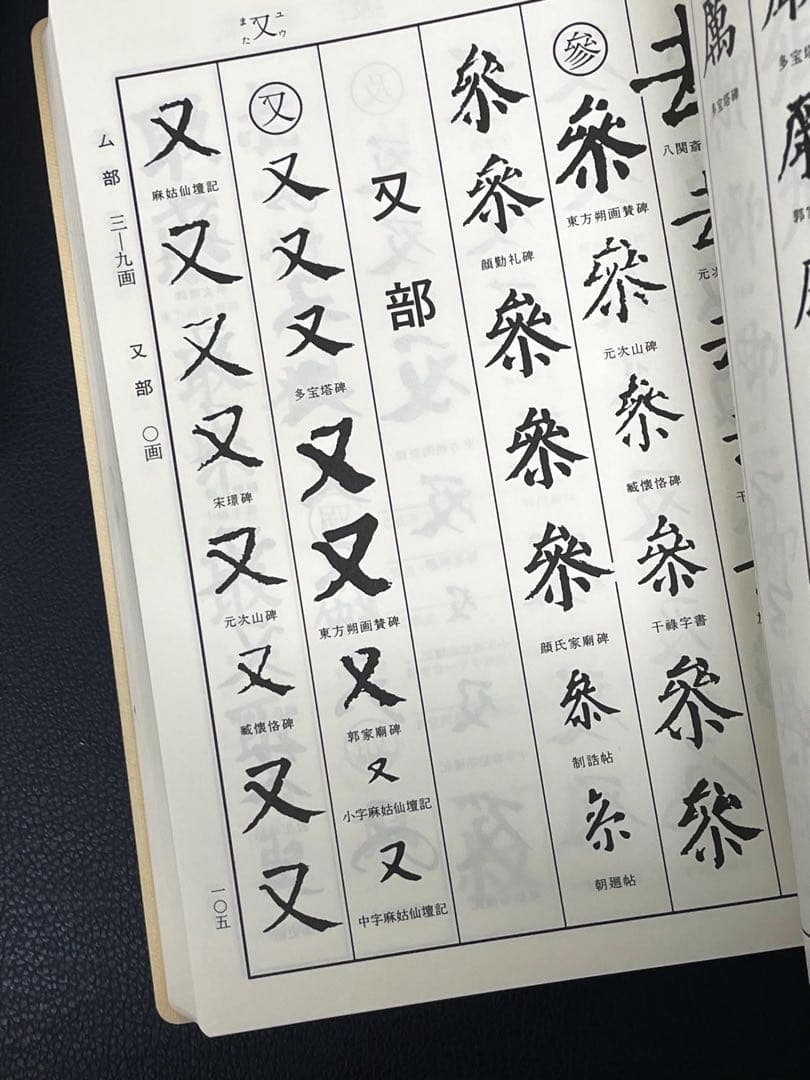 又
また
ユウ
多宝塔碑
去
八関斎
元次
參
參
東方朔画賛碑
參
元次山碑
參
臧懐恪碑
參
干祿字書
參
參
參
參
顔勤礼碑
參
參
參
顔氏家廟碑
參
制誥帖
參
朝廻帖
又部
又
又
又
又
多宝塔碑
又
又
東方朔画賛碑
又
郭家廟碑
又
小字麻姑仙壇記
又
中字麻姑仙壇記
又
麻姑仙壇記
又
又
又
宋璟碑
又
元次山碑
又
臧懐恪碑
又
又
ム部 三—九画 又部 〇画
一〇五